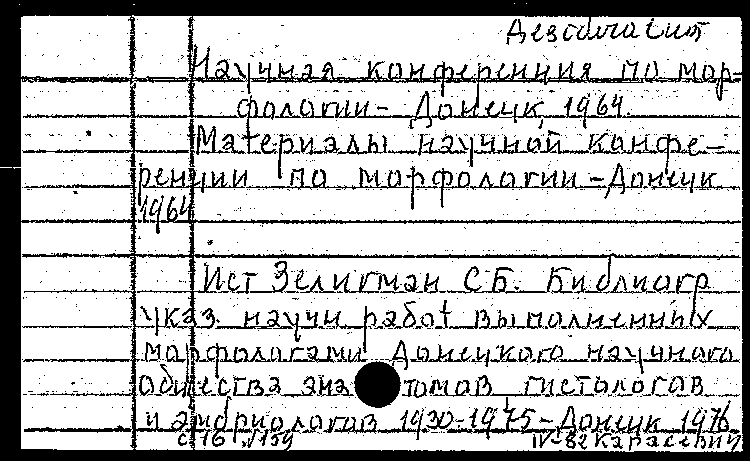 Дезабиласит
Научная конференция по мор-
фологии - Донецк, 1964.
Материалы научной конфе-
ренции по морфологии - Донецк
1964
Ист Зелигман С.Б. Библиогр
указ. научн работ выполненных
морфологами Донецкого научного
общества анатомов гистологов
и эмбриологов 1930-1975 - Донецк 1976
с 16 №159 IV-82 Карасевич